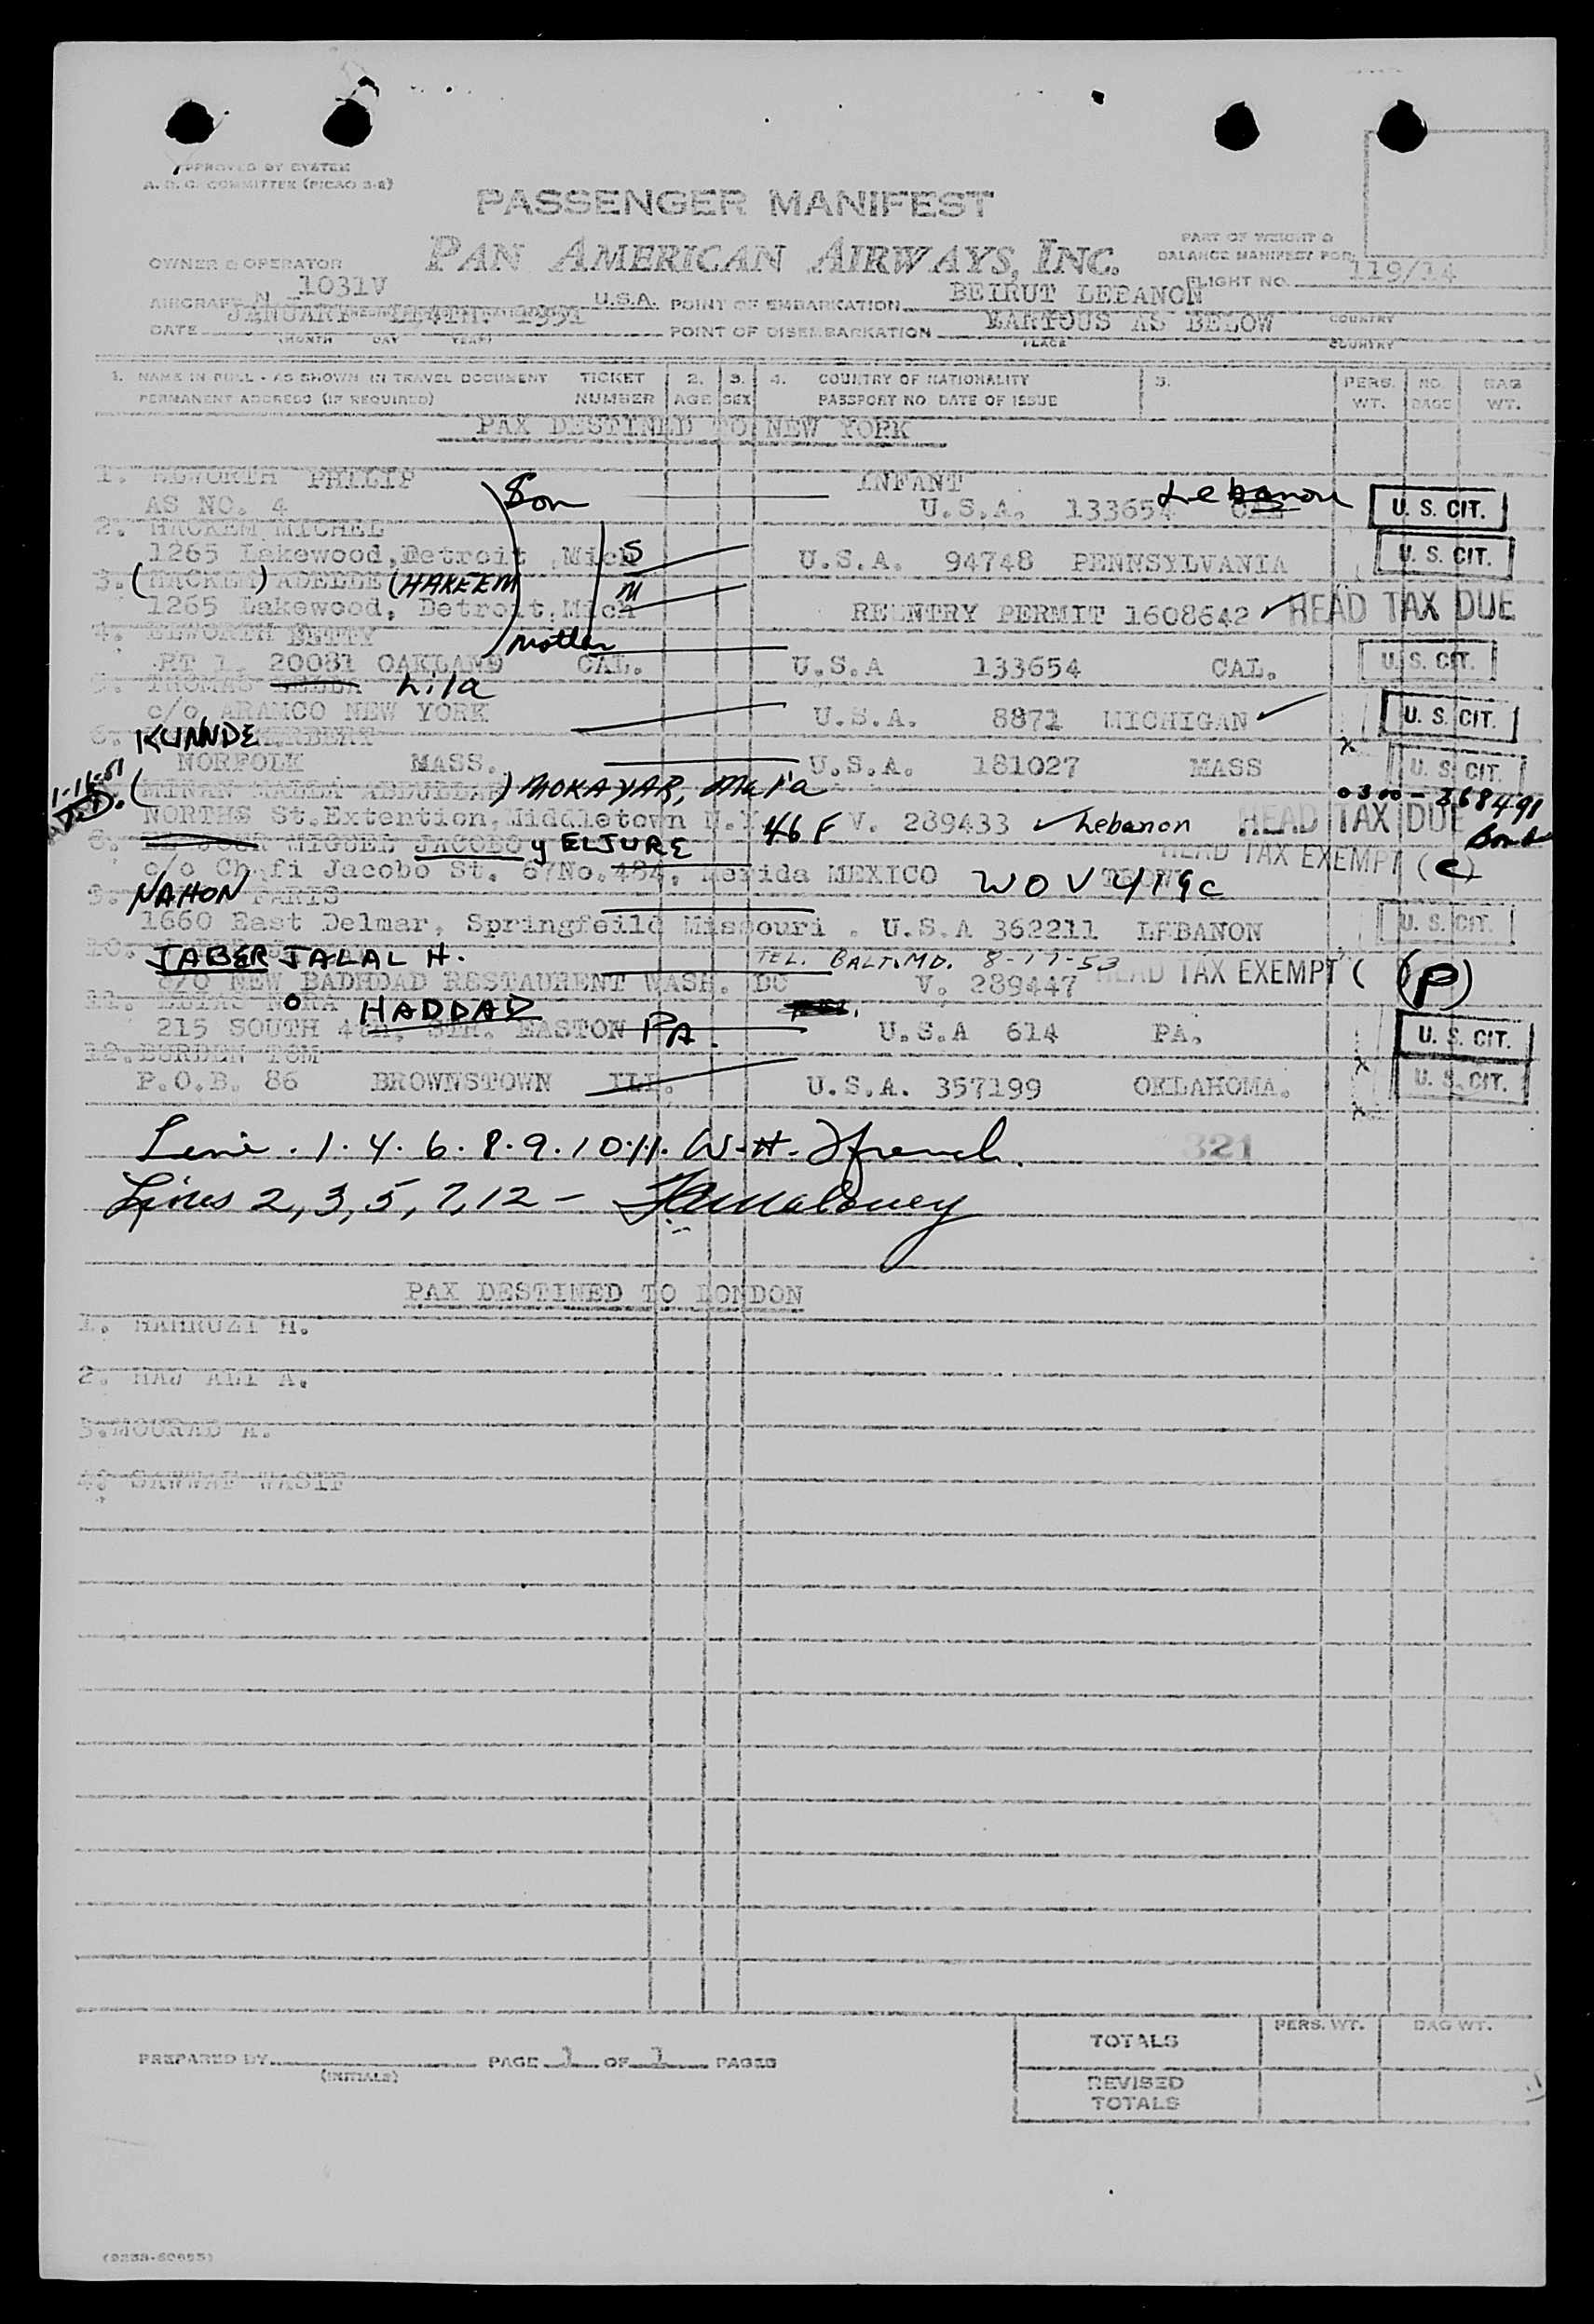 APPROVED BY SYSTEM
A. D. C. COMMITTEE (PICAO 2-8)
PASSENGER MANIFEST
PAN AMERICAN AIRWAYS, INC.
PART OF WEIGHT &
BALANCE MANIFEST FOR
OWNER & OPERATOR
FLIGHT NO. 119/14
AIRCRAFT N 1031V U.S.A. POINT OF EMBARKATION BEIRUT LEBANON
DATE JANUARY 1951 POINT OF DISEMBARKATION VARIOUS AS BELOW COUNTRY
(MONTH DAY YEAR) PLACE COUNTRY
1. NAME IN FULL - AS SHOWN IN TRAVEL DOCUMENT TICKET 2. 3. 4. COUNTRY OF NATIONALITY 5. PERS. NO. BAG
PERMANENT ADDRESS (IF REQUIRED) NUMBER AGE SEX PASSPORT NO DATE OF ISSUE WT. BAGS WT.
PAX DESTINED TO NEW YORK
1. ELWORTH PHILIP Son INFANT
AS NO. 4 U.S.A. 133654 Lebanon U. S. CIT.
2. HACKEM MICHEL
1265 Lakewood, Detroit, Mich S U.S.A. 94748 PENNSYLVANIA U. S. CIT.
3. (HACKEM) ADELLE (HAKEEM M
1265 Lakewood, Detroit, Mich REENTRY PERMIT 1608642 HEAD TAX DUE
4. ELWORTH BETTY Mother
RT 1. 20081 OAKLAND CAL. U.S.A 133654 CAL. U. S. CIT.
5. THOMAS Lila
c/o ARAMCO NEW YORK U.S.A. 8871 MICHIGAN U. S. CIT.
6. KUNNDE HERBERT
NORFOLK MASS. U.S.A. 181027 MASS U. S. CIT.
1-16-51 ( ABDULLAH ) MOKAYAR, Mala 0300-368491
NORTHS St. Extention, Middletown N.Y. 46 F V. 289433 Lebanon HEAD TAX DUE Bond
8. MIGUEL JACOBO y ELJURE HEAD TAX EXEMPT (C)
c/o Chafi Jacobo St. 67No. 484, Merida MEXICO WOV 419c
9. NAHON FARIS
1660 East Delmar, Springfeild Missouri. U.S.A 362211 LEBANON U. S. CIT.
10. JABER JALAL H. TEL. BALT. MD. 8-17-53
c/o NEW BADHDAD RESTAURENT WASH. DC V. 289447 HEAD TAX EXEMPT (P)
11. NORA HADDAD
215 SOUTH 4th, STR. EASTON PA. U.S.A 614 PA. U. S. CIT.
12. BURDEN TOM
P.O.B. 86 BROWNSTOWN ILL. U.S.A. 357199 OKLAHOMA. U. S. CIT.
Line . 1. 4. 6. 8. 9. 10. 11. W. H. French. 321
Lines 2, 3, 5, 7, 12 - Maloney
PAX DESTINED TO LONDON
1. MAHRUZI H.
2. HAW ALI A.
3. MOURAD A.
4. SAWWAF WASIF
TOTALS PERS. WT. BAG WT.
PREPARED BY PAGE 1 OF 1 PAGES
(INITIALS)
REVISED
TOTALS